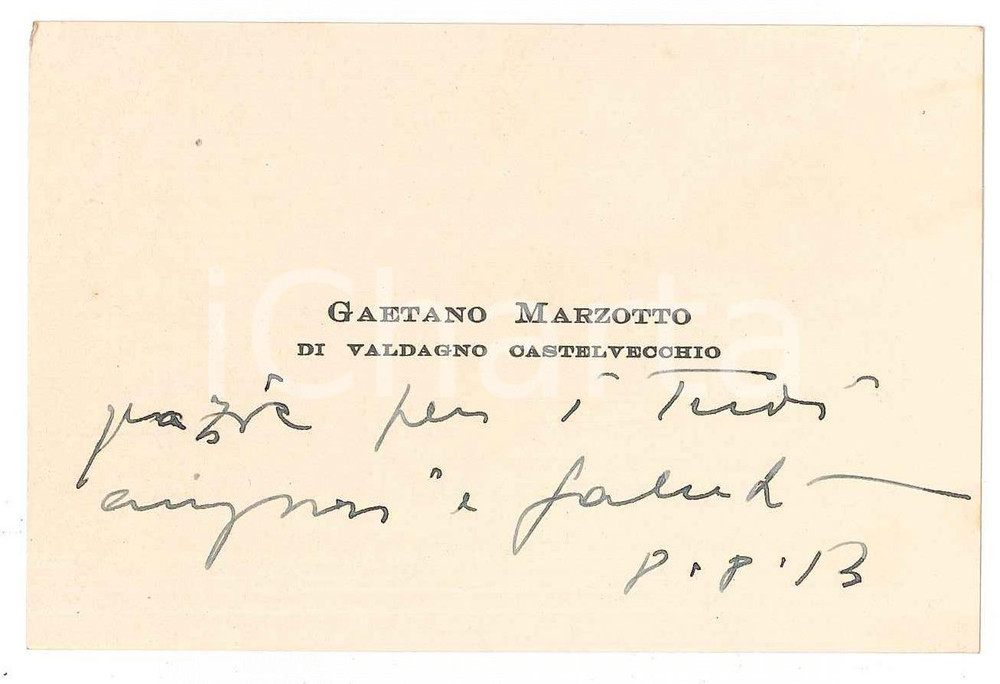 Gaetano Marzotto
di Valdagno Castelvecchio
grazie per i Tuoi
auguri e saluti
8.8.13
iCharta